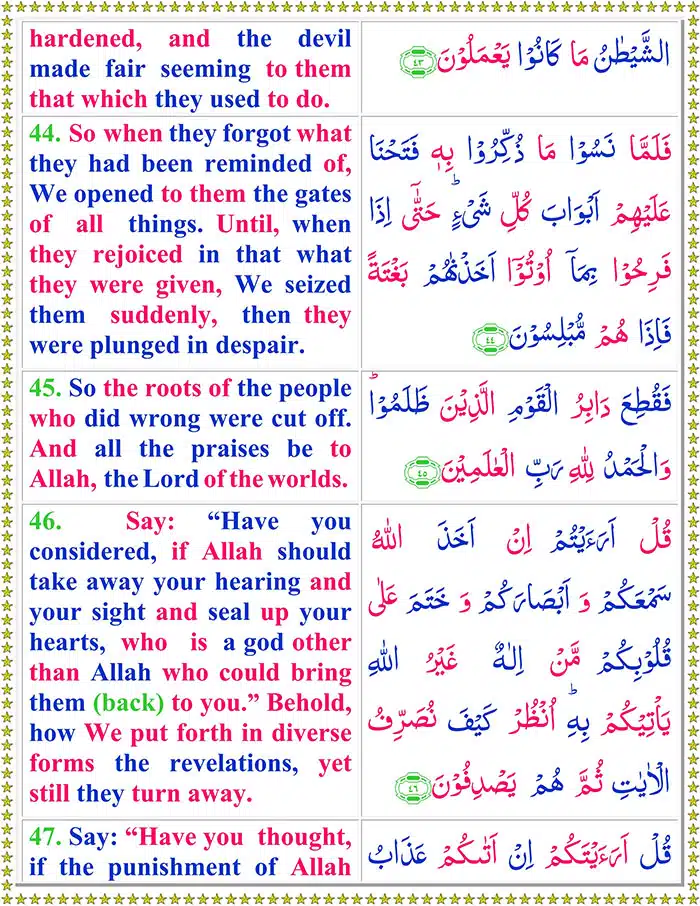 hardened, and the devil
made fair seeming to them
that which they used to do.
الشَّيْطٰنُ مَا كَانُوْا يَعْمَلُوْنَ ﴿۴۳﴾
44. So when they forgot what
they had been reminded of,
We opened to them the gates
of all things. Until, when
they rejoiced in that what
they were given, We seized
them suddenly, then they
were plunged in despair.
فَلَمَّا نَسُوْا مَا ذُكِّرُوْا بِهٖ فَتَحْنَا
عَلَيْهِمْ اَبْوَابَ كُلِّ شَیْءٍ ؕ حَتّٰۤی اِذَا
فَرِحُوْا بِمَاۤ اُوْتُوْۤا اَخَذْنٰهُمْ بَغْتَةً
فَاِذَا هُمْ مُّبْلِسُوْنَ ﴿۴۴﴾
45. So the roots of the people
who did wrong were cut off.
And all the praises be to
Allah, the Lord of the worlds.
فَقُطِعَ دَابِرُ الْقَوْمِ الَّذِيْنَ ظَلَمُوْا ؕ
وَالْحَمْدُ لِلّٰهِ رَبِّ الْعٰلَمِيْنَ ﴿۴۵﴾
46. Say: “Have you
considered, if Allah should
take away your hearing and
your sight and seal up your
hearts, who is a god other
than Allah who could bring
them (back) to you.” Behold,
how We put forth in diverse
forms the revelations, yet
still they turn away.
قُلْ اَرَءَيْتُمْ اِنْ اَخَذَ اللّٰهُ
سَمْعَكُمْ وَ اَبْصَارَكُمْ وَ خَتَمَ عَلٰی
قُلُوْبِكُمْ مَّنْ اِلٰهٌ غَيْرُ اللّٰهِ
يَاْتِيْكُمْ بِهٖ ؕ اُنْظُرْ كَيْفَ نُصَرِّفُ
الْاٰيٰتِ ثُمَّ هُمْ يَصْدِفُوْنَ ﴿۴۶﴾
47. Say: “Have you thought,
if the punishment of Allah
قُلْ اَرَءَيْتَكُمْ اِنْ اَتٰىكُمْ عَذَابُ